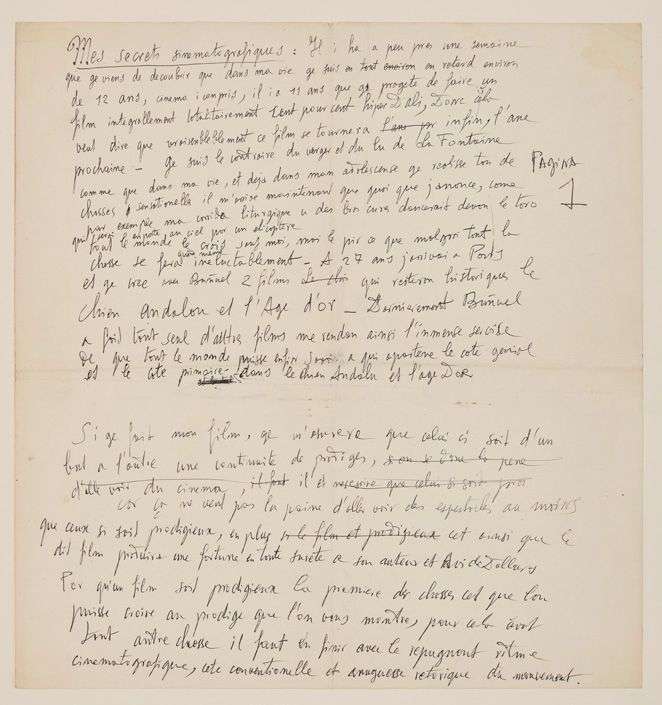 Mes secrets sinematografiques : Il i ha a peu pres une semaine
que ge viens de decoubrir que dans ma vie ge suis en tout environ en retard environ
de 12 ans, cinema i conpris, il i a 11 ans que ge progete de faire un
film integrollement totalitairement tent pour cent hiper Dali, Donc cela
veut dire que vraisenblablement ce film se tournera l'ane pr infin, l'ane
prochaine – ge suis le contraire du verger et du lu de La Fontaine
comme que dans ma vie, et deja dans mon adolescense ge realise ton de
PAGINA
1
chosses sensationelle il m'arive maintenant que quoi que j'anonce, come
par exemple ma corida liturgique u des bro cura danserait devon le toro
qui serai enporte au ciel par un elicoptere
tout le monde le crois sauf moi, moi le pir ce que malgre tout la
chosse se fera quand meme ineluctablement – A 27 ans j'arivai a Paris
et ge cree avec Buñuel 2 films qui resteron historiques le
Chien andalou et l'Age d'or – Dernierement Buñuel
a fait tout seul d'autres films me rendan ainsi l'inmense servise
de que tout le monde puisse enfin savoir a qui apartene le cote genial
et le cote primaire dans le chien Andalu et l'age Dor
Si ge fait mon film, ge m'asurera que celui ci soit d'un
bout a l'autre une continuite de prodiges, si on se done la pene
d'alle voir du cinema, il faut il et necesaire que celui si soit
car ça ne veut pas la paine d'alle voir des espectacles au moins
que ceux si soit prodigieux, en plus si le film et prodigieux cet ainsi que le
dit film produira une fortune en toute surete a son auteur et Avi de Dollars
Por qu'un film soit prodigieux la premiere des chosses cet que l'on
puisse croire au prodige que l'on vous montre, pour cela avant
tout autre chosse il faut en finir avec le repugnant ritme
cinematografique, cete conventionelle et anuyeuse retorique du mouvement.